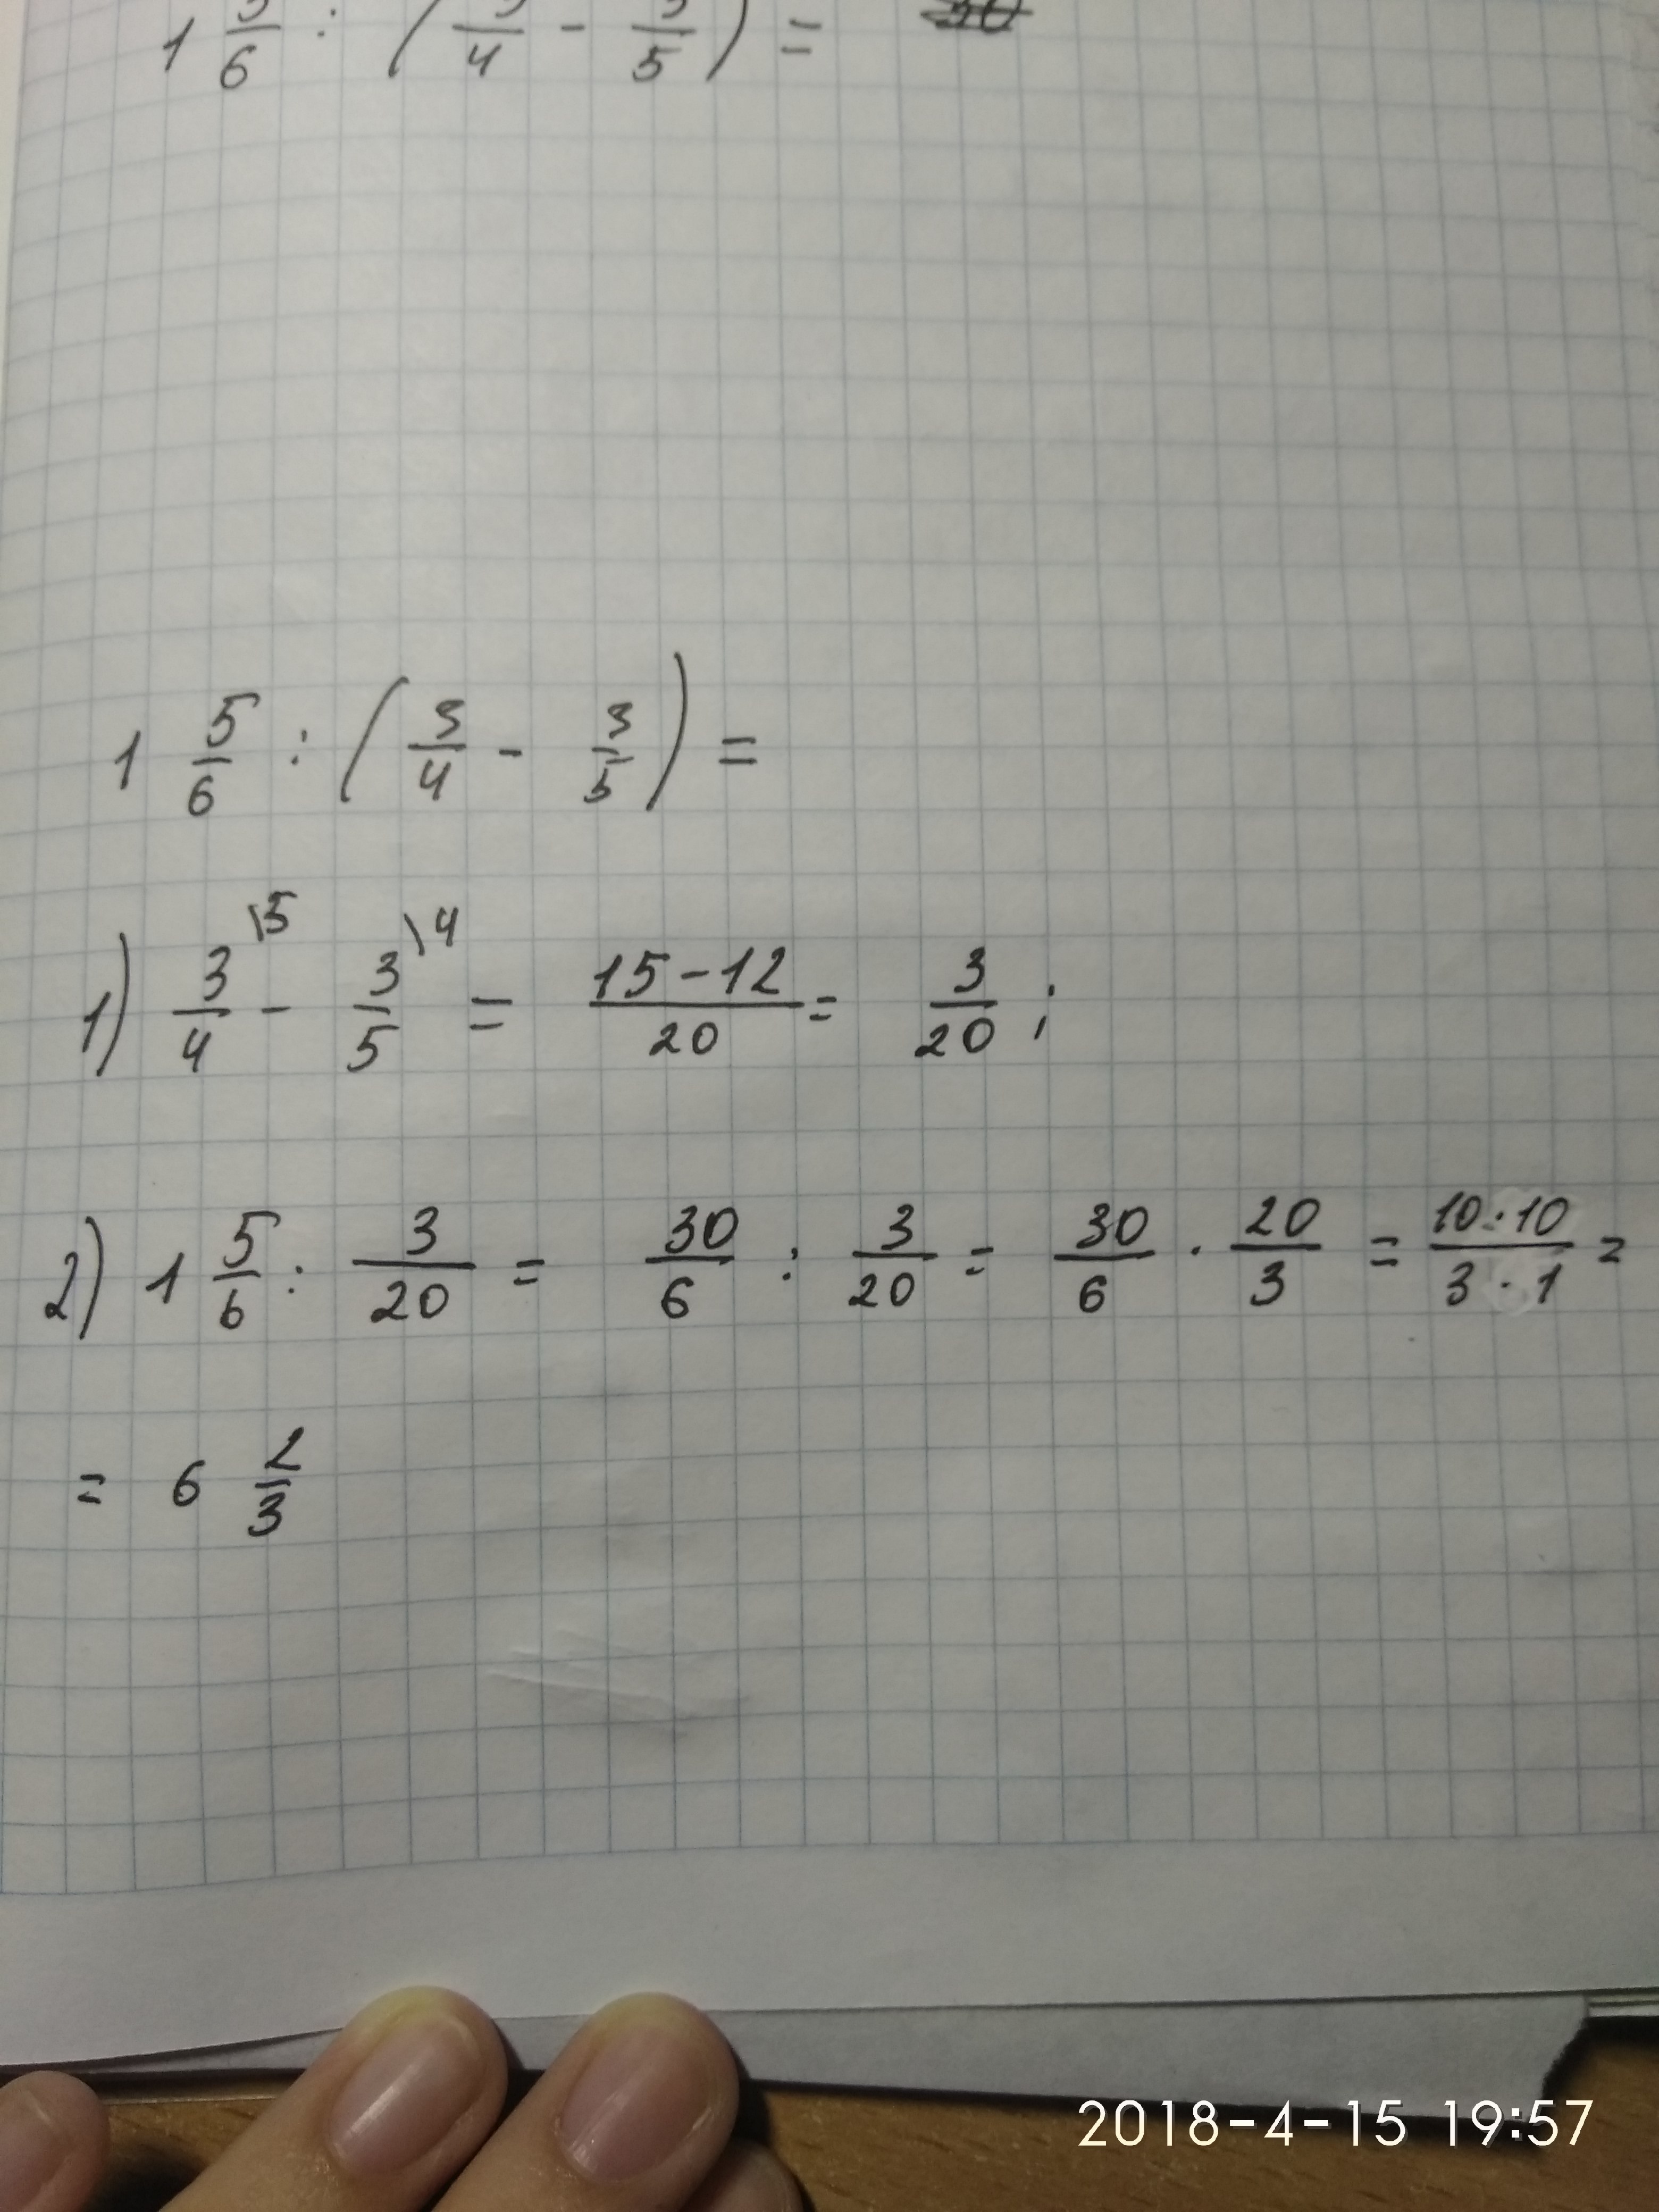 1 5/6 : ( 3/4 - 3/5 ) =
1 5/6 : ( 3/4 - 3/5 ) =
1) 3/4 \5 - 3/5 \4 = 15-12/20 = 3/20 ;
2) 1 5/6 : 3/20 = 30/6 : 3/20 = 30/6 · 20/3 = 10·10/3·1 =
= 6 2/3
2018-4-15 19:57